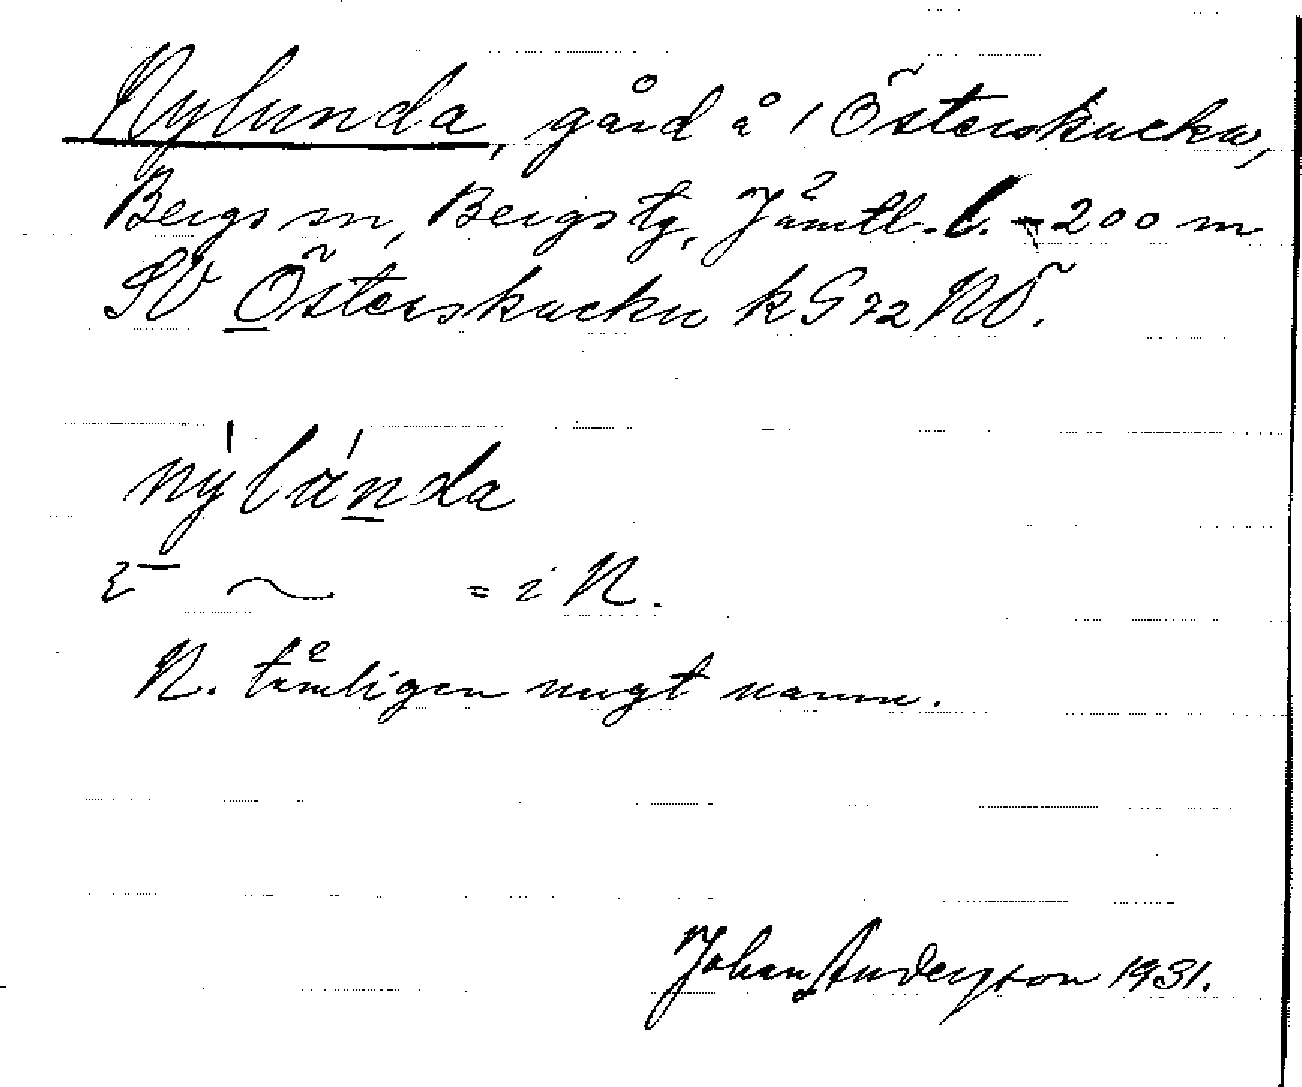 Nylunda, gård å 1 Österskucku,
Bergs sn, Bergs tg, Jämtl. l. 200 m
SV Österskucku kG72NV.
nýlánda
~ = i N.
N. tämligen nugt namn.
Johan Anderson 1931.